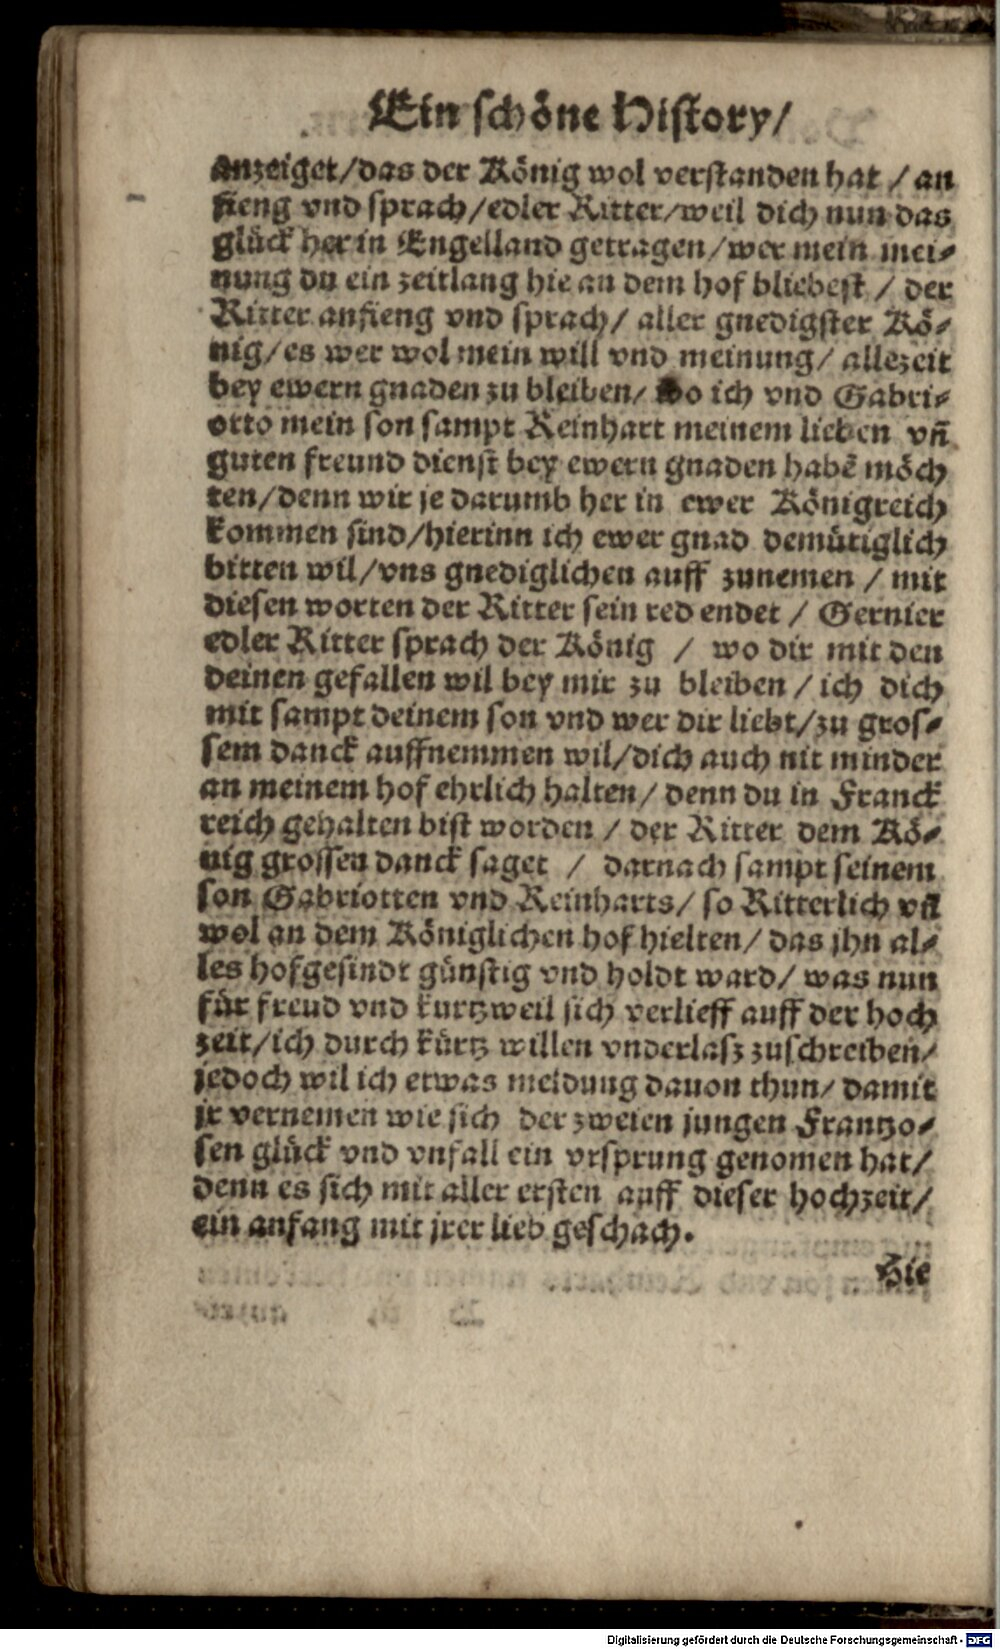 Ein schöne History/
anzeiget/das der König wol verstanden hat / an
fieng vnd sprach/edler Ritter/weil dich nun das
glück her in Engelland getragen/wer mein mei-
nung du ein zeitlang hie an dem hof bliebest / der
Ritter anfieng vnd sprach/ aller gnedigster Kö-
nig/es wer wol mein will vnd meinung/ allezeit
bey ewern gnaden zu bleiben/ wo ich vnd Gabri-
otto mein son sampt Reinhart meinem lieben vñ
guten freund dienst bey ewern gnaden habẽ möch
ten/denn wir je darumb her in ewer Königreich
kommen sind/hierinn ich ewer gnad demütiglich
bitten wil/vns gnediglichen auff zunemen / mit
diesen worten der Ritter sein red endet / Gernier
edler Ritter sprach der König / wo dir mit den
deinen gefallen wil bey mir zu bleiben / ich dich
mit sampt deinem son vnd wer dir liebt/zu gros-
sem danck auffnemmen wil/dich auch nit minder
an meinem hof ehrlich halten/ denn du in Franck
reich gehalten bist worden / der Ritter dem Kö-
nig grossen danck saget / darnach sampt seinem
son Gabriotten vnd Reinharts/ so Ritterlich vñ
wol an dem Königlichen hof hielten/ das jhn al-
les hofgesindt günstig vnd holdt ward/ was nun
für freud vnd kurtzweil sich verlieff auff der hoch
zeit/ich durch kürtz willen vnderlasz zuschreiben/
jedoch wil ich etwas meldung dauon thun/ damit
jr vernemen wie sich der zweien jungen Frantzo-
sen glück vnd vnfall ein vrsprung genomen hat/
denn es sich mit aller ersten auff dieser hochzeit/
ein anfang mit jrer lieb geschach.
Hie
Digitalisierung gefördert durch die Deutsche Forschungsgemeinschaft - DFG